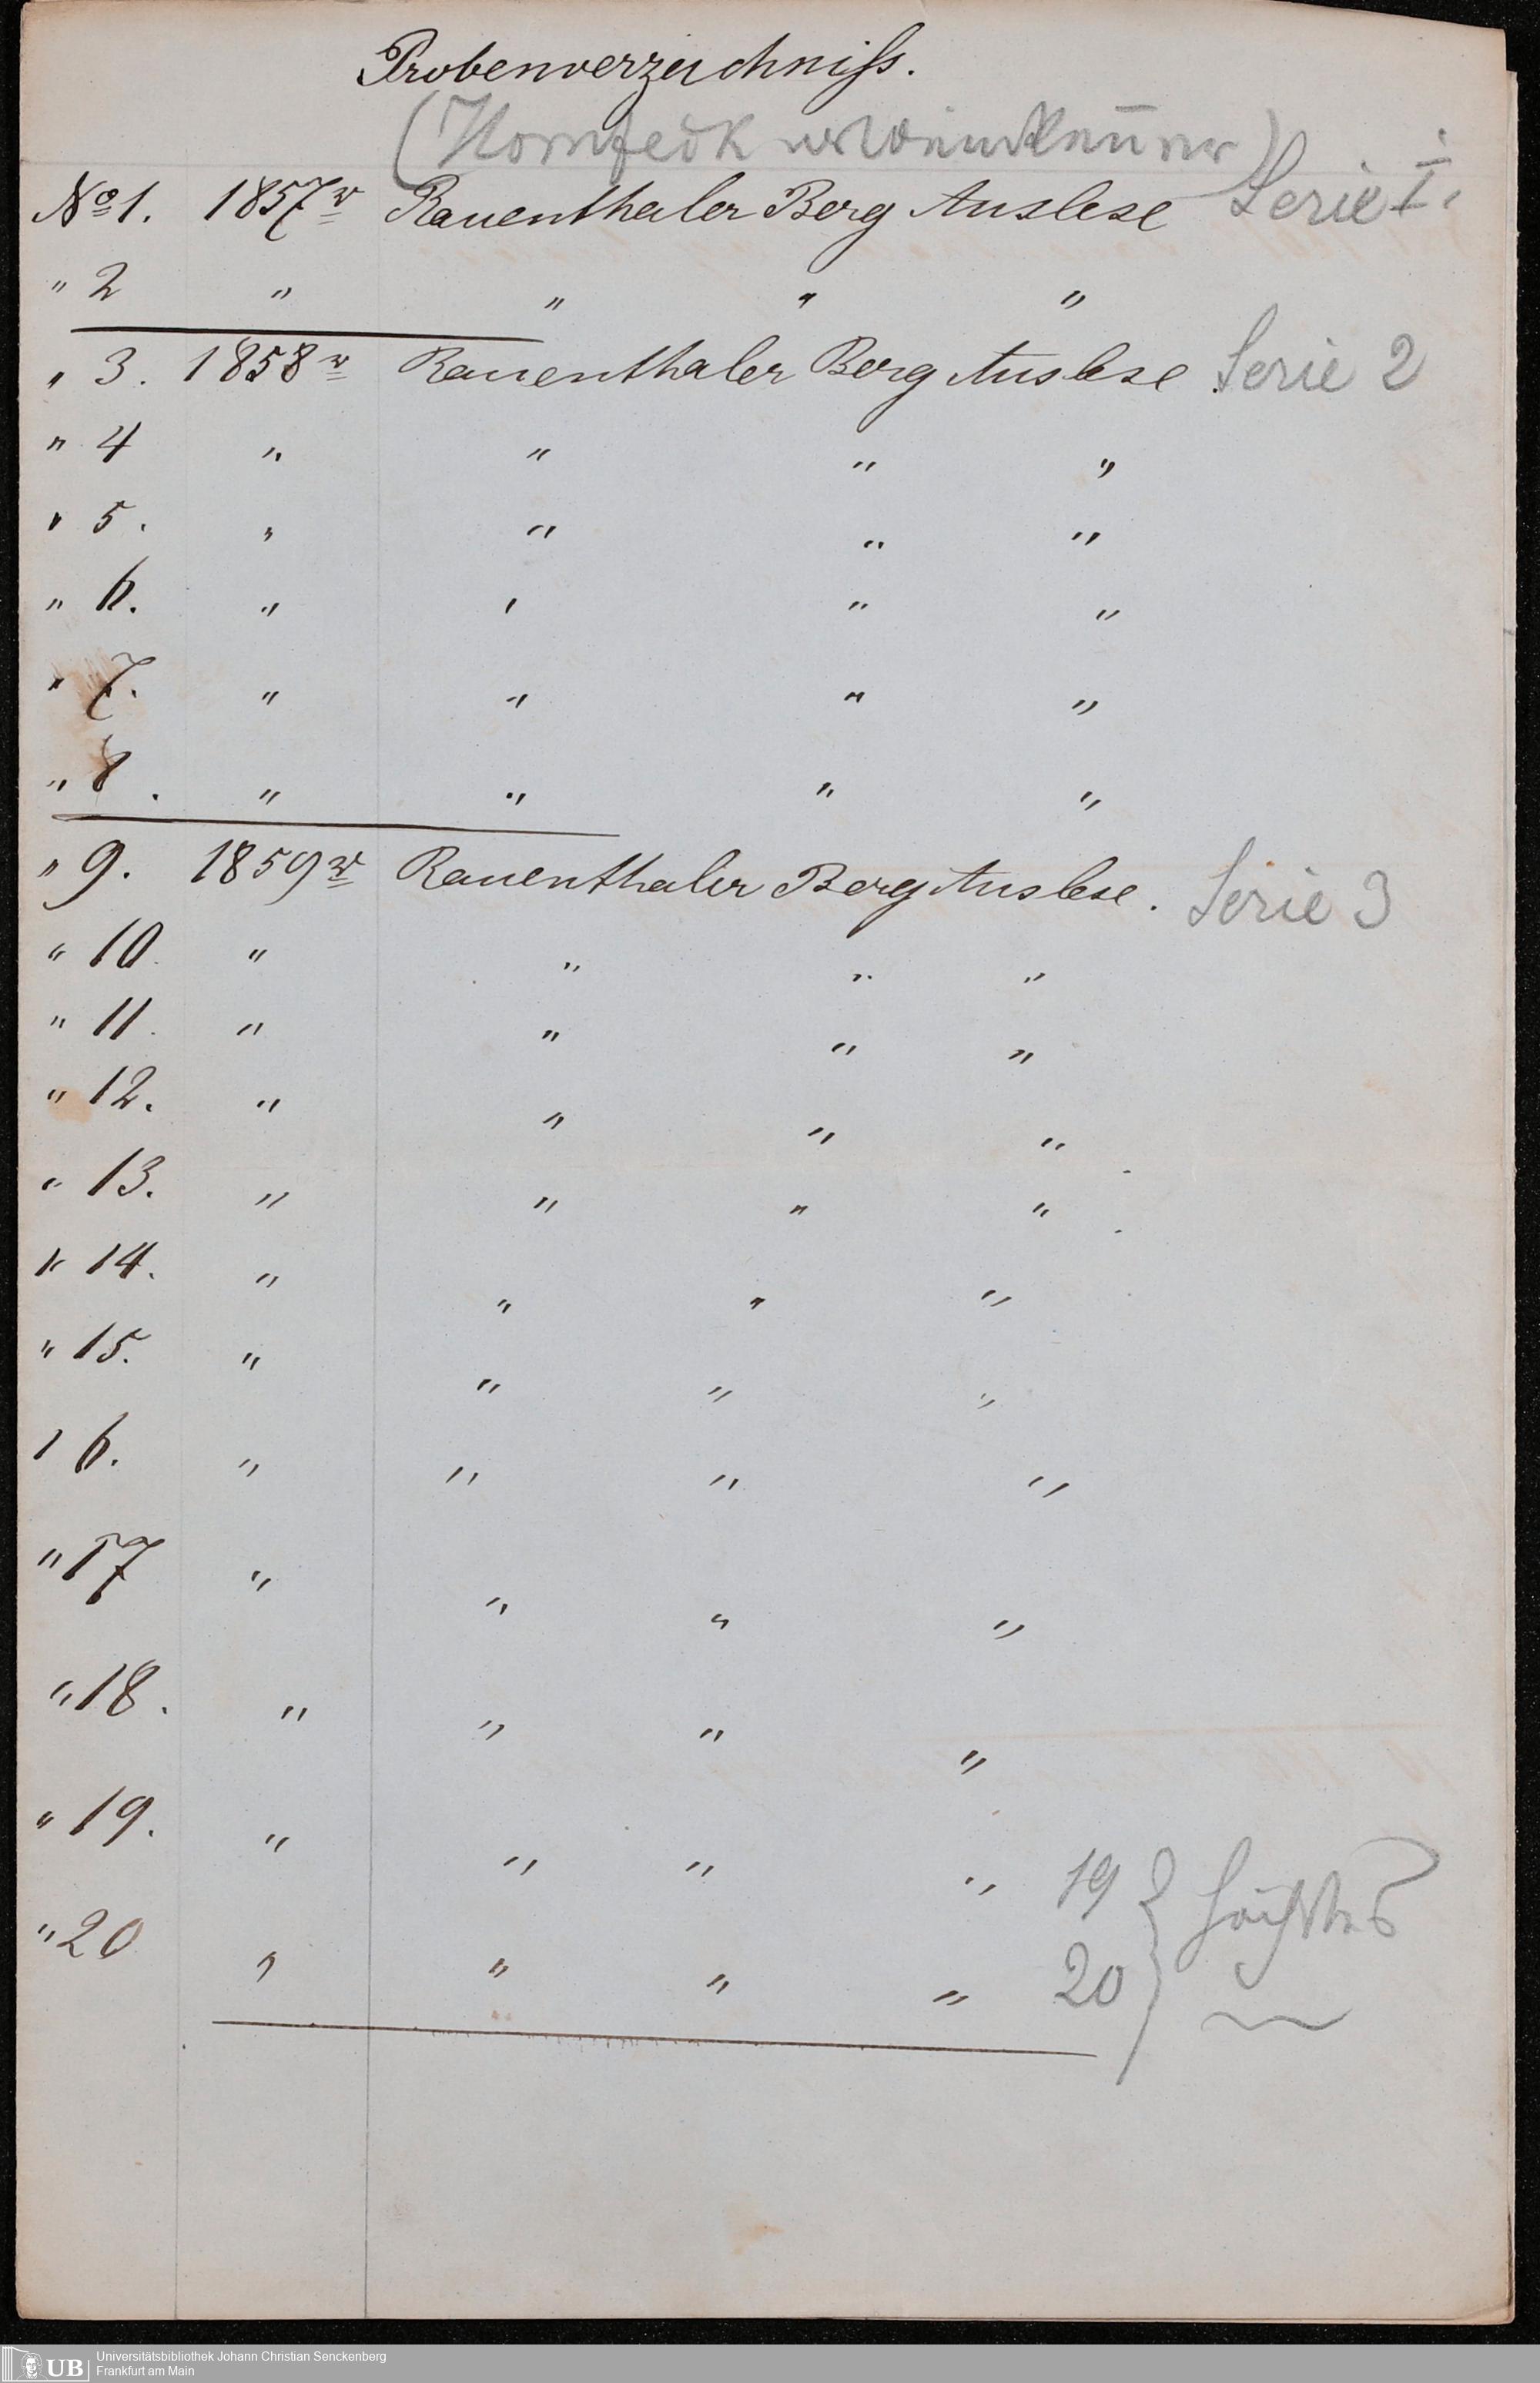 Probenverzeichniss.
No 1. 1857r Rauenthaler Berg Auslese Serie I.
" 2 " " " "
" 3. 1858r Rauenthaler Berg Auslese. Serie 2
" 4 " " " "
" 5. " " " "
" 6. " " " "
" 7. " " " "
" 8. " " " "
" 9. 1859r Rauenthaler Berg Auslese. Serie 3
" 10. " " " "
" 11. " " " "
" 12. " " " "
" 13. " " " "
" 14. " " " "
" 15. " " " "
16. " " " "
" 17 " " " "
" 18. " " " "
" 19. " " " " 19
" 20 " " " " 20
UB Universitätsbibliothek Johann Christian Senckenberg
Frankfurt am Main